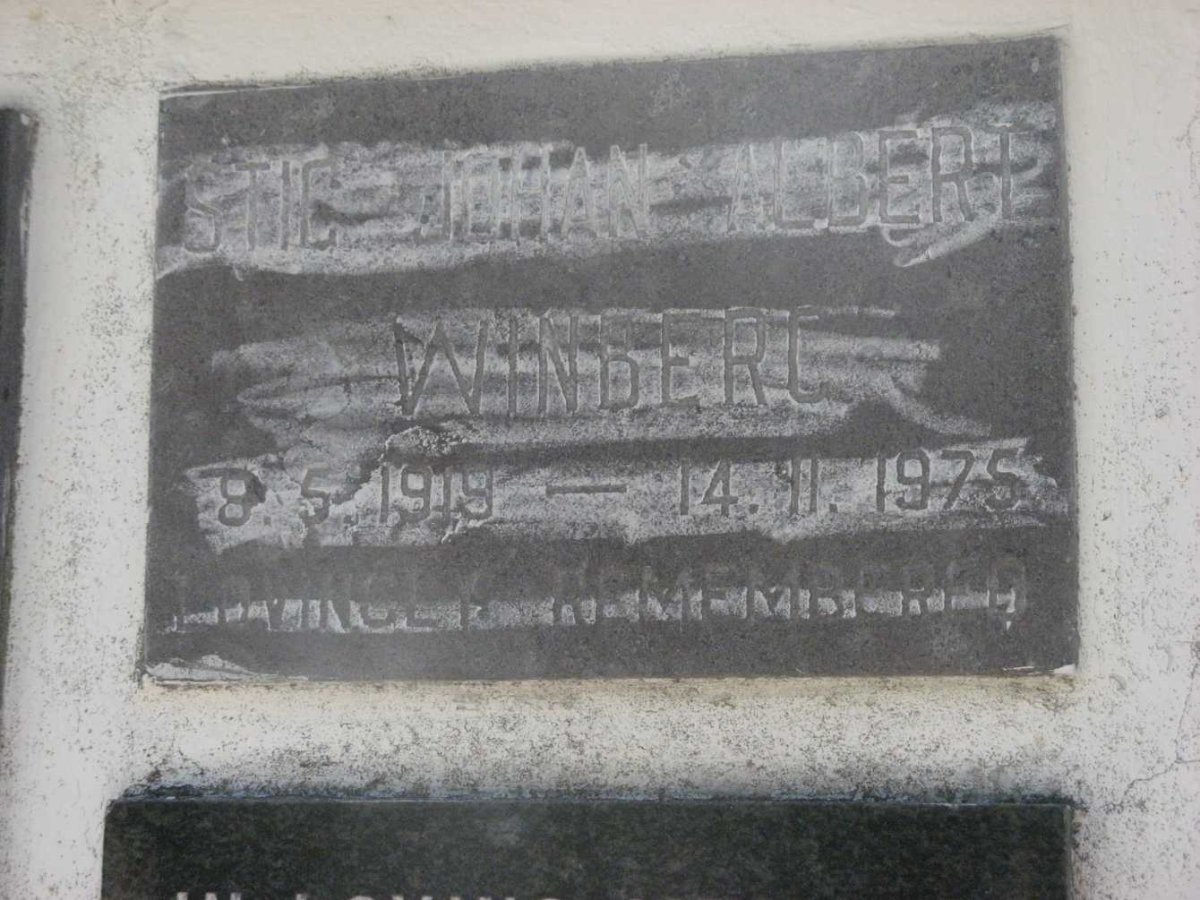 STIG JOHAN ALBERT
WINBERG
8.5.1919 — 14.11.1975
LOVINGLY REMEMBERED
IN LOVING